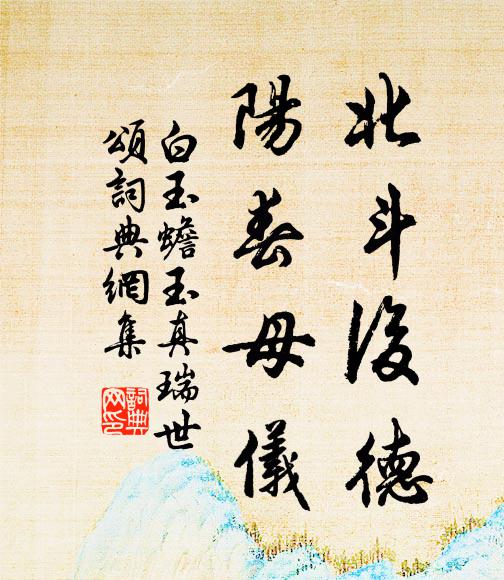 北斗後德
陽春母儀
白玉蟾玉真瑞世
頌詞典網集
詞典
网印